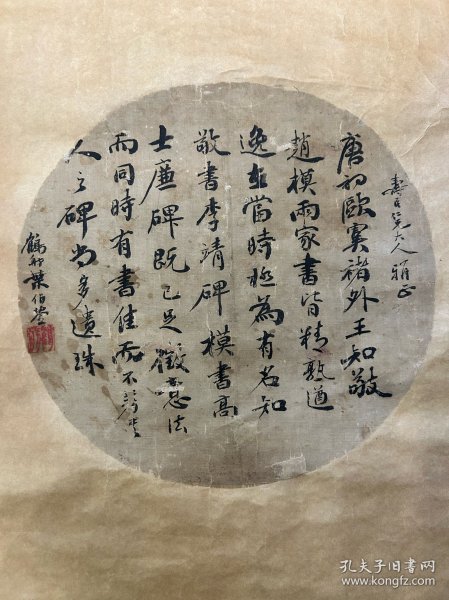 壽兄大人雅正
唐初歐虞褚外王知敬
趙模兩家書皆精熟遒
逸在當時極為有名知
敬書李靖碑模書高
士廉碑既已足徵意法
而同時有書佳而不著書
人之碑尚多遺珠
鶴葉伯
孔夫子旧书网
www.kongfz.com